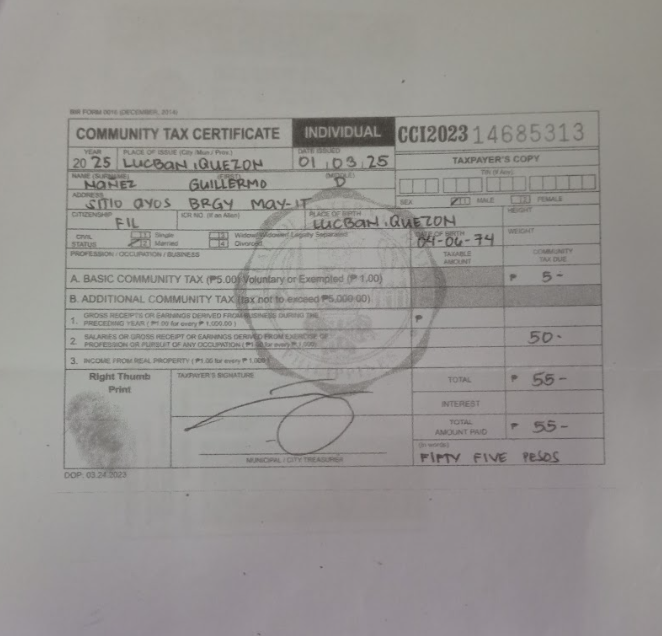 BIR FORM 0016 (DECEMBER, 2014)
COMMUNITY TAX CERTIFICATE INDIVIDUAL CCI2023 14685313
YEAR PLACE OF ISSUE (City / Mun / Prov.) DATE ISSUED TAXPAYER'S COPY
2025 LUCBAN, QUEZON 01.03.25
NAME (SURNAME) (FIRST) (MIDDLE) TIN (If Any)
NAÑEZ GUILLERMO D
ADDRESS SEX MALE FEMALE
SITIO AYOS BRGY MAY-IT
CITIZENSHIP ICR NO. (If an Alien) PLACE OF BIRTH HEIGHT
FIL LUCBAN, QUEZON
CIVIL STATUS 1 Single 3 Widow/Widower/Legally Separated DATE OF BIRTH WEIGHT
2 Married 4 Divorced 04-06-74
PROFESSION / OCCUPATION / BUSINESS TAXABLE AMOUNT COMMUNITY TAX DUE
A. BASIC COMMUNITY TAX (₱5.00) Voluntary or Exempted (₱1.00) ₱ 5-
B. ADDITIONAL COMMUNITY TAX (tax not to exceed ₱5,000.00)
1. GROSS RECEIPTS OR EARNINGS DERIVED FROM BUSINESS DURING THE PRECEDING YEAR (₱1.00 for every ₱1,000.00) ₱
2. SALARIES OR GROSS RECEIPT OR EARNINGS DERIVED FROM EXERCISE OF PROFESSION OR PURSUIT OF ANY OCCUPATION (₱1.00 for every ₱1,000) 50-
3. INCOME FROM REAL PROPERTY (₱1.00 for every ₱1,000)
Right Thumb Print TAXPAYER'S SIGNATURE TOTAL ₱ 55-
INTEREST
TOTAL AMOUNT PAID ₱ 55-
MUNICIPAL / CITY TREASURER (in words)
FIFTY FIVE PESOS
DOP: 03.24.2023